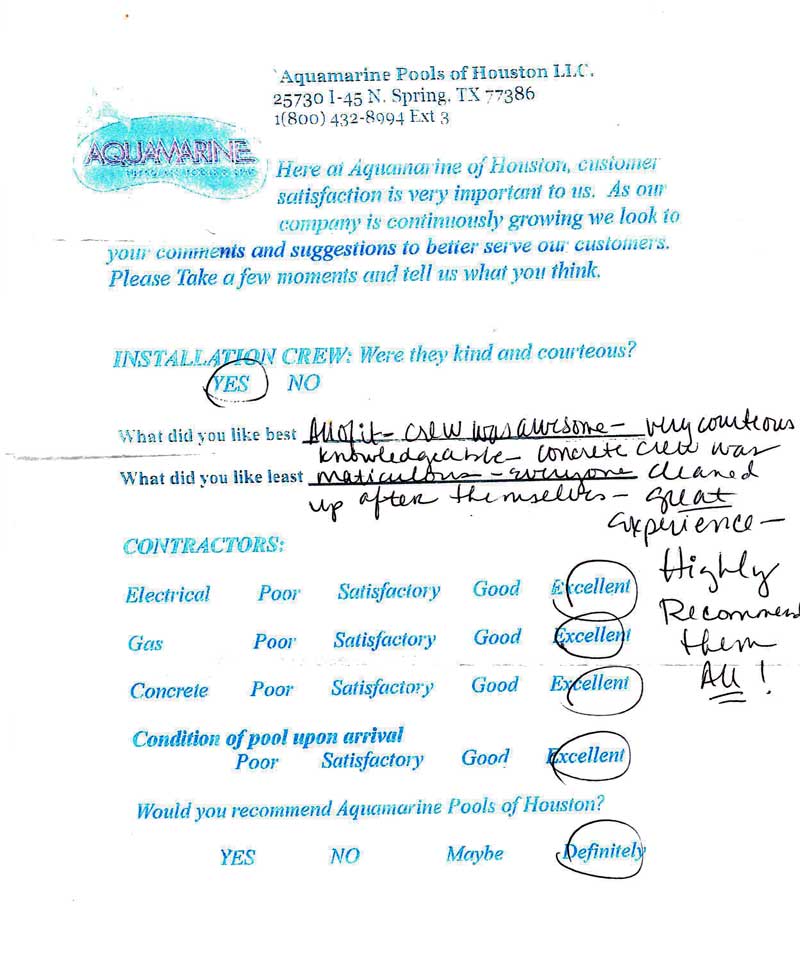 Aquamarine Pools of Houston LLC.
25730 I-45 N. Spring, TX 77386
1(800) 432-8994 Ext 3
AQUAMARINE
Here at Aquamarine of Houston, customer
satisfaction is very important to us. As our
company is continuously growing we look to
your comments and suggestions to better serve our customers.
Please Take a few moments and tell us what you think.
INSTALLATION CREW: Were they kind and courteous?
YES NO
What did you like best All of it - crew was awesome - very courteous
knowledgeable - concrete crew was
What did you like least maticulous - everyone cleaned
up after themselves - great
experience -
Highly
Recommend
them
All!
CONTRACTORS:
Electrical Poor Satisfactory Good Excellent
Gas Poor Satisfactory Good Excellent
Concrete Poor Satisfactory Good Excellent
Condition of pool upon arrival
Poor Satisfactory Good Excellent
Would you recommend Aquamarine Pools of Houston?
YES NO Maybe Definitely